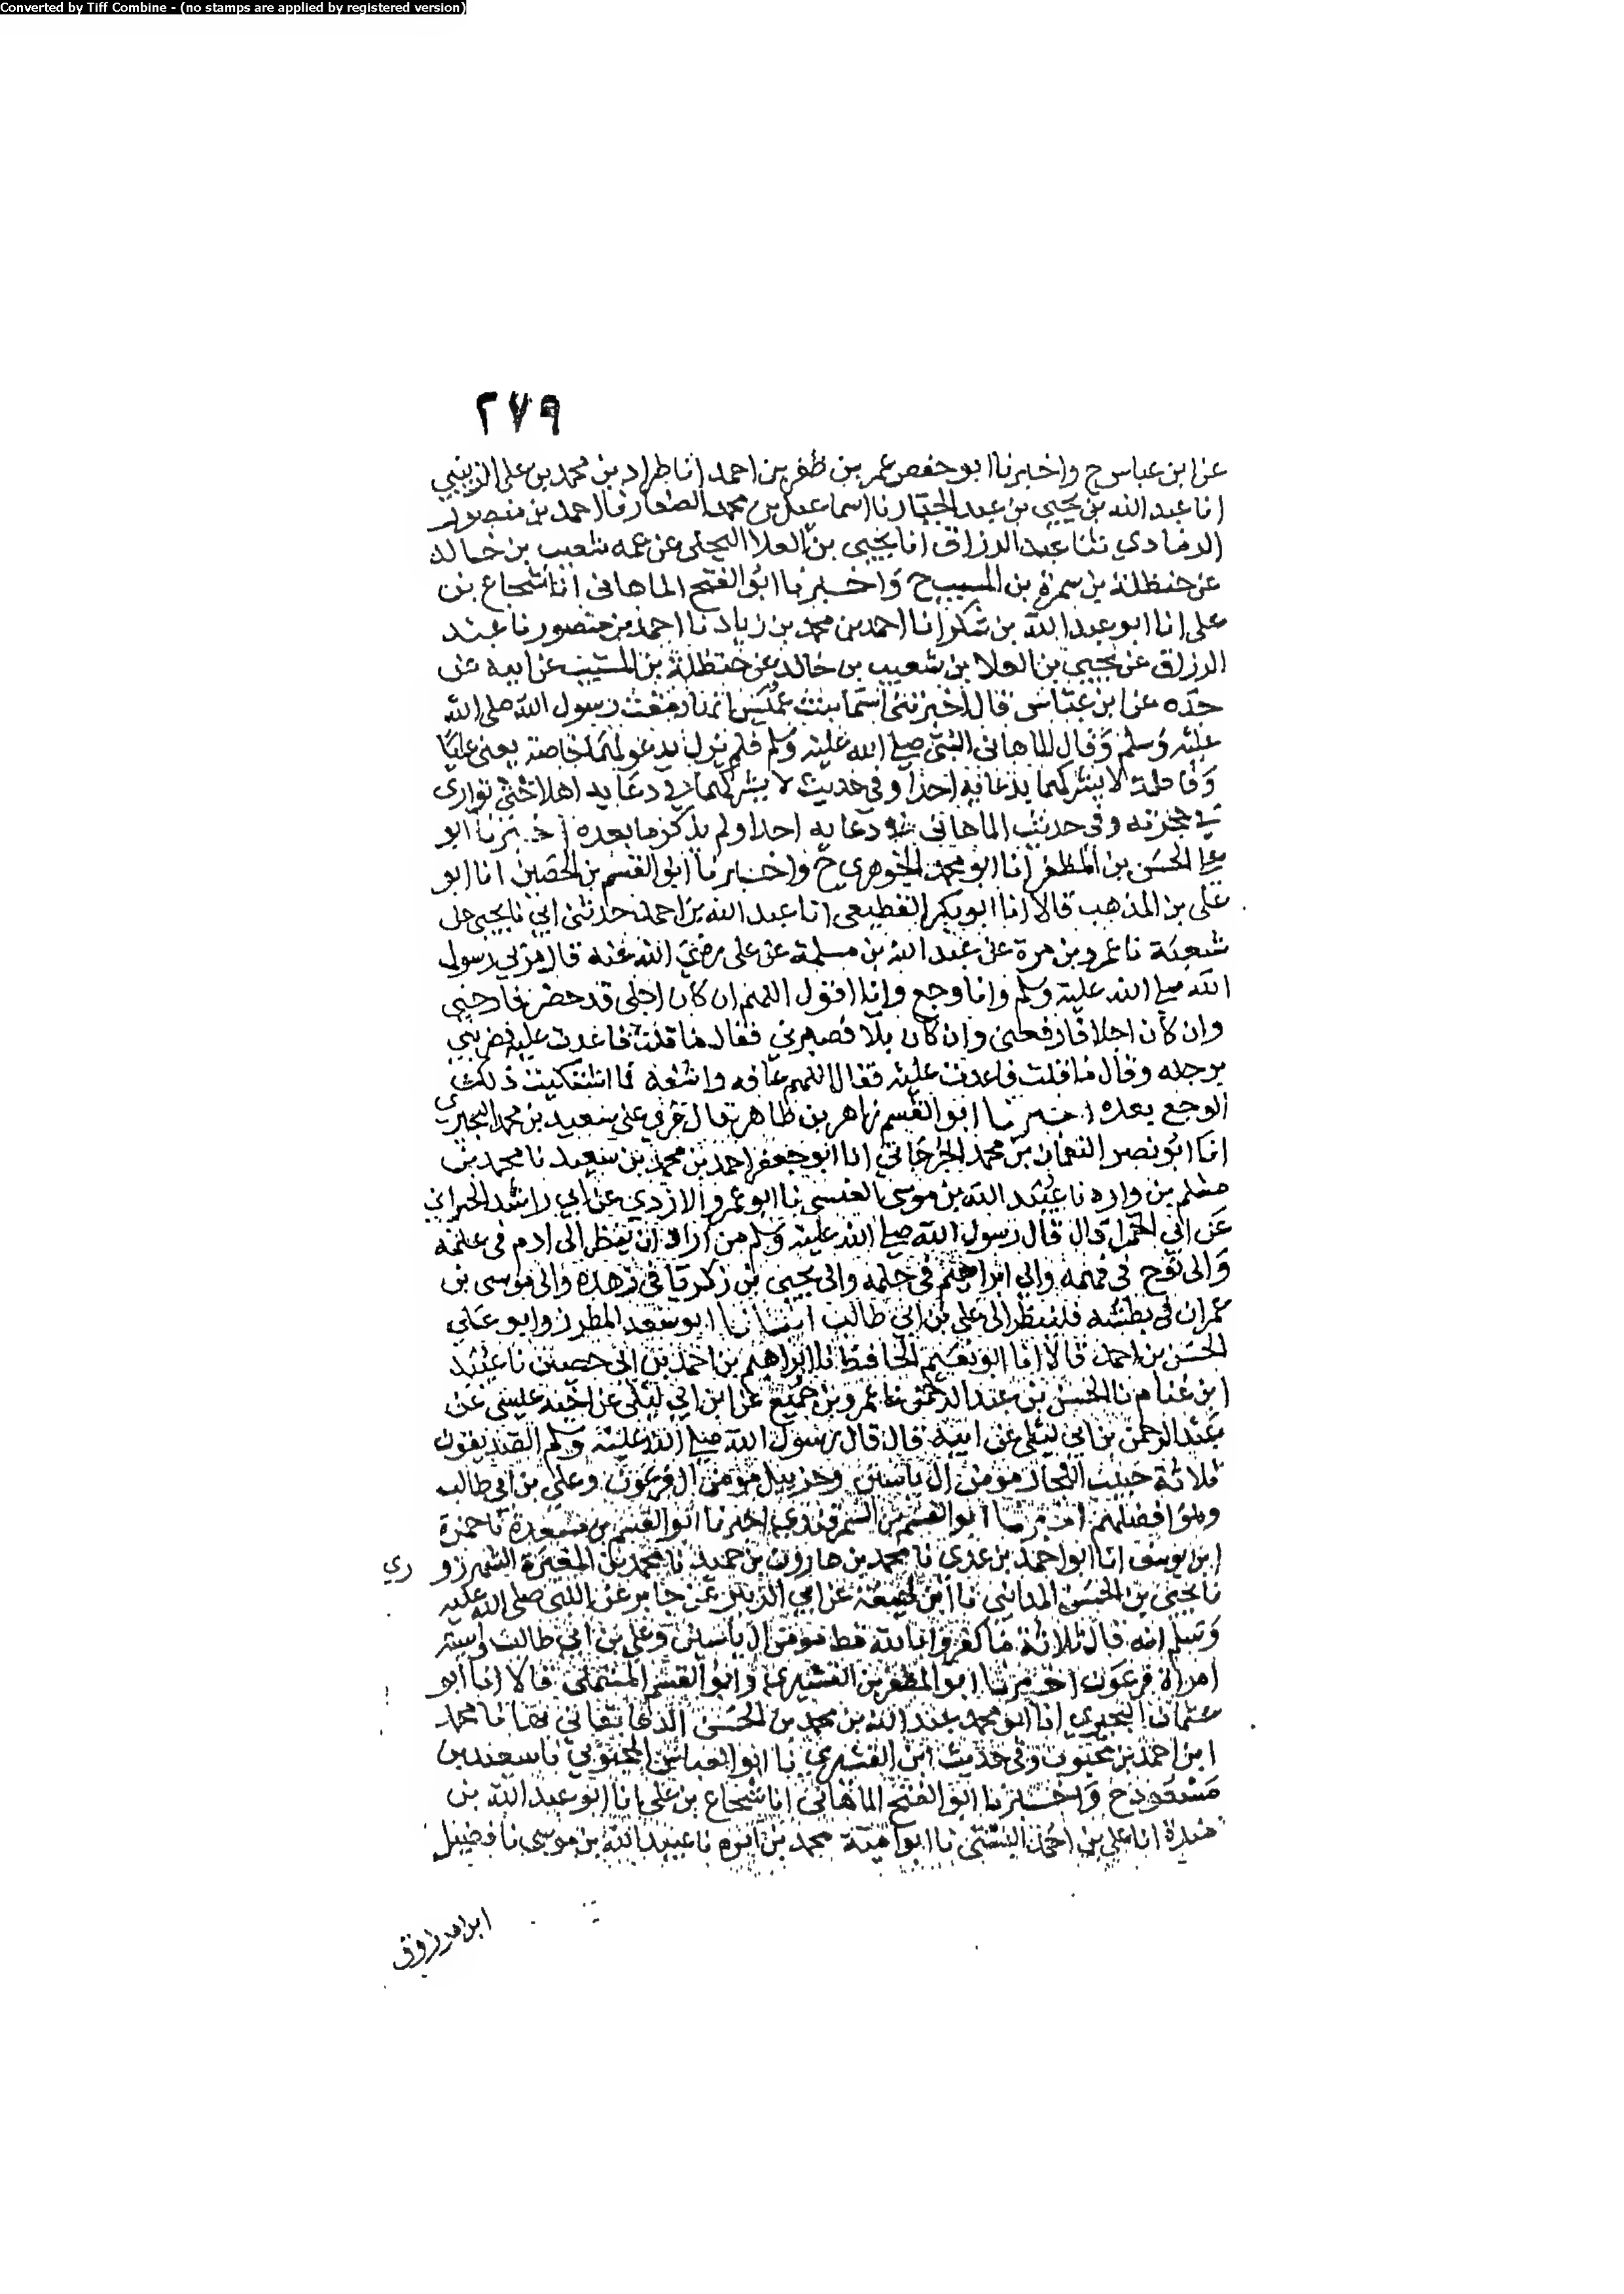 Converted by Tiff Combine - (no stamps are applied by registered version)
٢٧٩
عن ابن عباس ح واخبرنا ابو حفص عمر بن ظفر بن احمد انا طراد بن محمد بن علي الزينبي
انا عبد الله بن يحيى بن عبد الجبار نا اسماعيل بن محمد الصفار نا احمد بن منصور
الرمادي نثنا عبد الرزاق انا يحيى بن العلا البجلى عن عمه شعيب بن خالد
عن حنظلة بن سمرة بن المسيب ح واخبرنا ابو الفتح الماهانى انا شجاع بن
على انا ابو عبد الله بن شكر انا احمد بن محمد بن زياد نا احمد بن منصور نا عبد
الرزاق عن يحيى بن العلا بن شعيب بن خالد عن حنظلة بن المسيب عن ابيه عن
جده عن ابن عباس قال اخبرتنى اسما بنت عميس انها رمقت رسول الله صلى الله
عليه وسلم وقال الماهانى النبى صلى الله عليه وسلم فلم يزل يدعو لهما خاصة يعنى عليا
وفاطمة لا يشركهما بدعائه احدا وفي حديث لا يشركهما في دعايه اهلا حتى توارى
في حجرته وفى حديث الماهانى في دعايه احدا ولم يذكر ما بعده اخبرنا ابو
على الحسن بن المظفر انا ابو محمد الجوهري ح واخبرنا ابو القسم بن الحصين انا ابو
على بن المذهب قالا انا ابو بكر القطيعى انا عبد الله بن احمد حدثنى ابي نا يحيى عن
شعبة نا عمرو بن مرة عن عبد الله بن مسلمة عن على رضي الله عنه قال مر بي رسول
الله صلى الله عليه وسلم وانا وجع وانا اقول اللهم ان كان اجلى قد حضر فارحني
وان كان اجلا فارفعنى وان كان بلا فصبرني فقال ما قلت فاعدت عليه فضربني
برجله وقال ما قلت فاعدت عليه فقال اللهم عافه واشفه فما اشتكيت ذلك
الوجع بعده اخبرنا ابو القسم زاهر بن طاهر قال قرئ على سعيد بن محمد البحيري
انا ابو نصر النعمان بن محمد الجرجاني انا ابو جعفر احمد بن محمد بن سعيد نا محمد بن
مسلم بن واره نا عبيد الله بن موسى العبسى نا ابو عمرو الازدي عن ابي راشد الحراني
عن ابي الحمرا قال قال رسول الله صلى الله عليه وسلم من اراد ان ينظر الى ادم فى علمه
والى نوح فى فهمه والى ابراهيم فى حلمه والى يحيى بن زكريا فى زهده والى موسى بن
عمران فى بطشه فلينظر الى على بن ابى طالب انبانا ابو سعد المطرز وابو علي
الحسن بن احمد قالا انا ابو نعيم الحافظ نا ابراهيم بن احمد بن ابى حصين نا عبيد
ابن غنام نا الحسن بن عبد الرحمن نا عمرو بن جميع عن ابن ابي ليلى عن اخيه عيسى عن
عبد الرحمن بن ابى ليلى عن ابيه قال قال رسول الله صلى الله عليه وسلم الصديقون
ثلاثة حبيب النجار مومن ال ياسين وحزبيل مومن ال فرعون وعلى بن ابى طالب
وهو افضلهم اخبرنا ابو القسم بن السمرقندي اخبرنا ابو القسم بن مسعدة نا حمزة
ابن يوسف انا ابو احمد بن عدى نا محمد بن هارون بن حميد نا محمد بن المغيرة الشهرزوري
نا يحيى بن الحسن المدائنى نا ابن لهيعة عن ابي الزبير عن جابر عن النبى صلى الله عليه
وسلم انه قال ثلاثة ما كفروا بالله قط مومن ال ياسين وعلى بن ابى طالب واسية
امراة فرعون اخبرنا ابو المظفر بن القشيري وابو القسم المستملى قالا انا ابو
عثمان البحيري انا ابو محمد عبد الله بن محمد بن الحسن نا محمد
ابن احمد بن محبوب وفى حديث ابن القشيري نا ابو العباس المحبوبي نا سعيد بن
مسعود ح واخبرنا ابو الفتح الماهانى انا شجاع بن على انا ابو عبد الله بن
مندة انا على بن احمد البستى نا ابو امية محمد بن ابرهيم نا عبيد الله بن موسى نا فضيل
ابن مرزوق